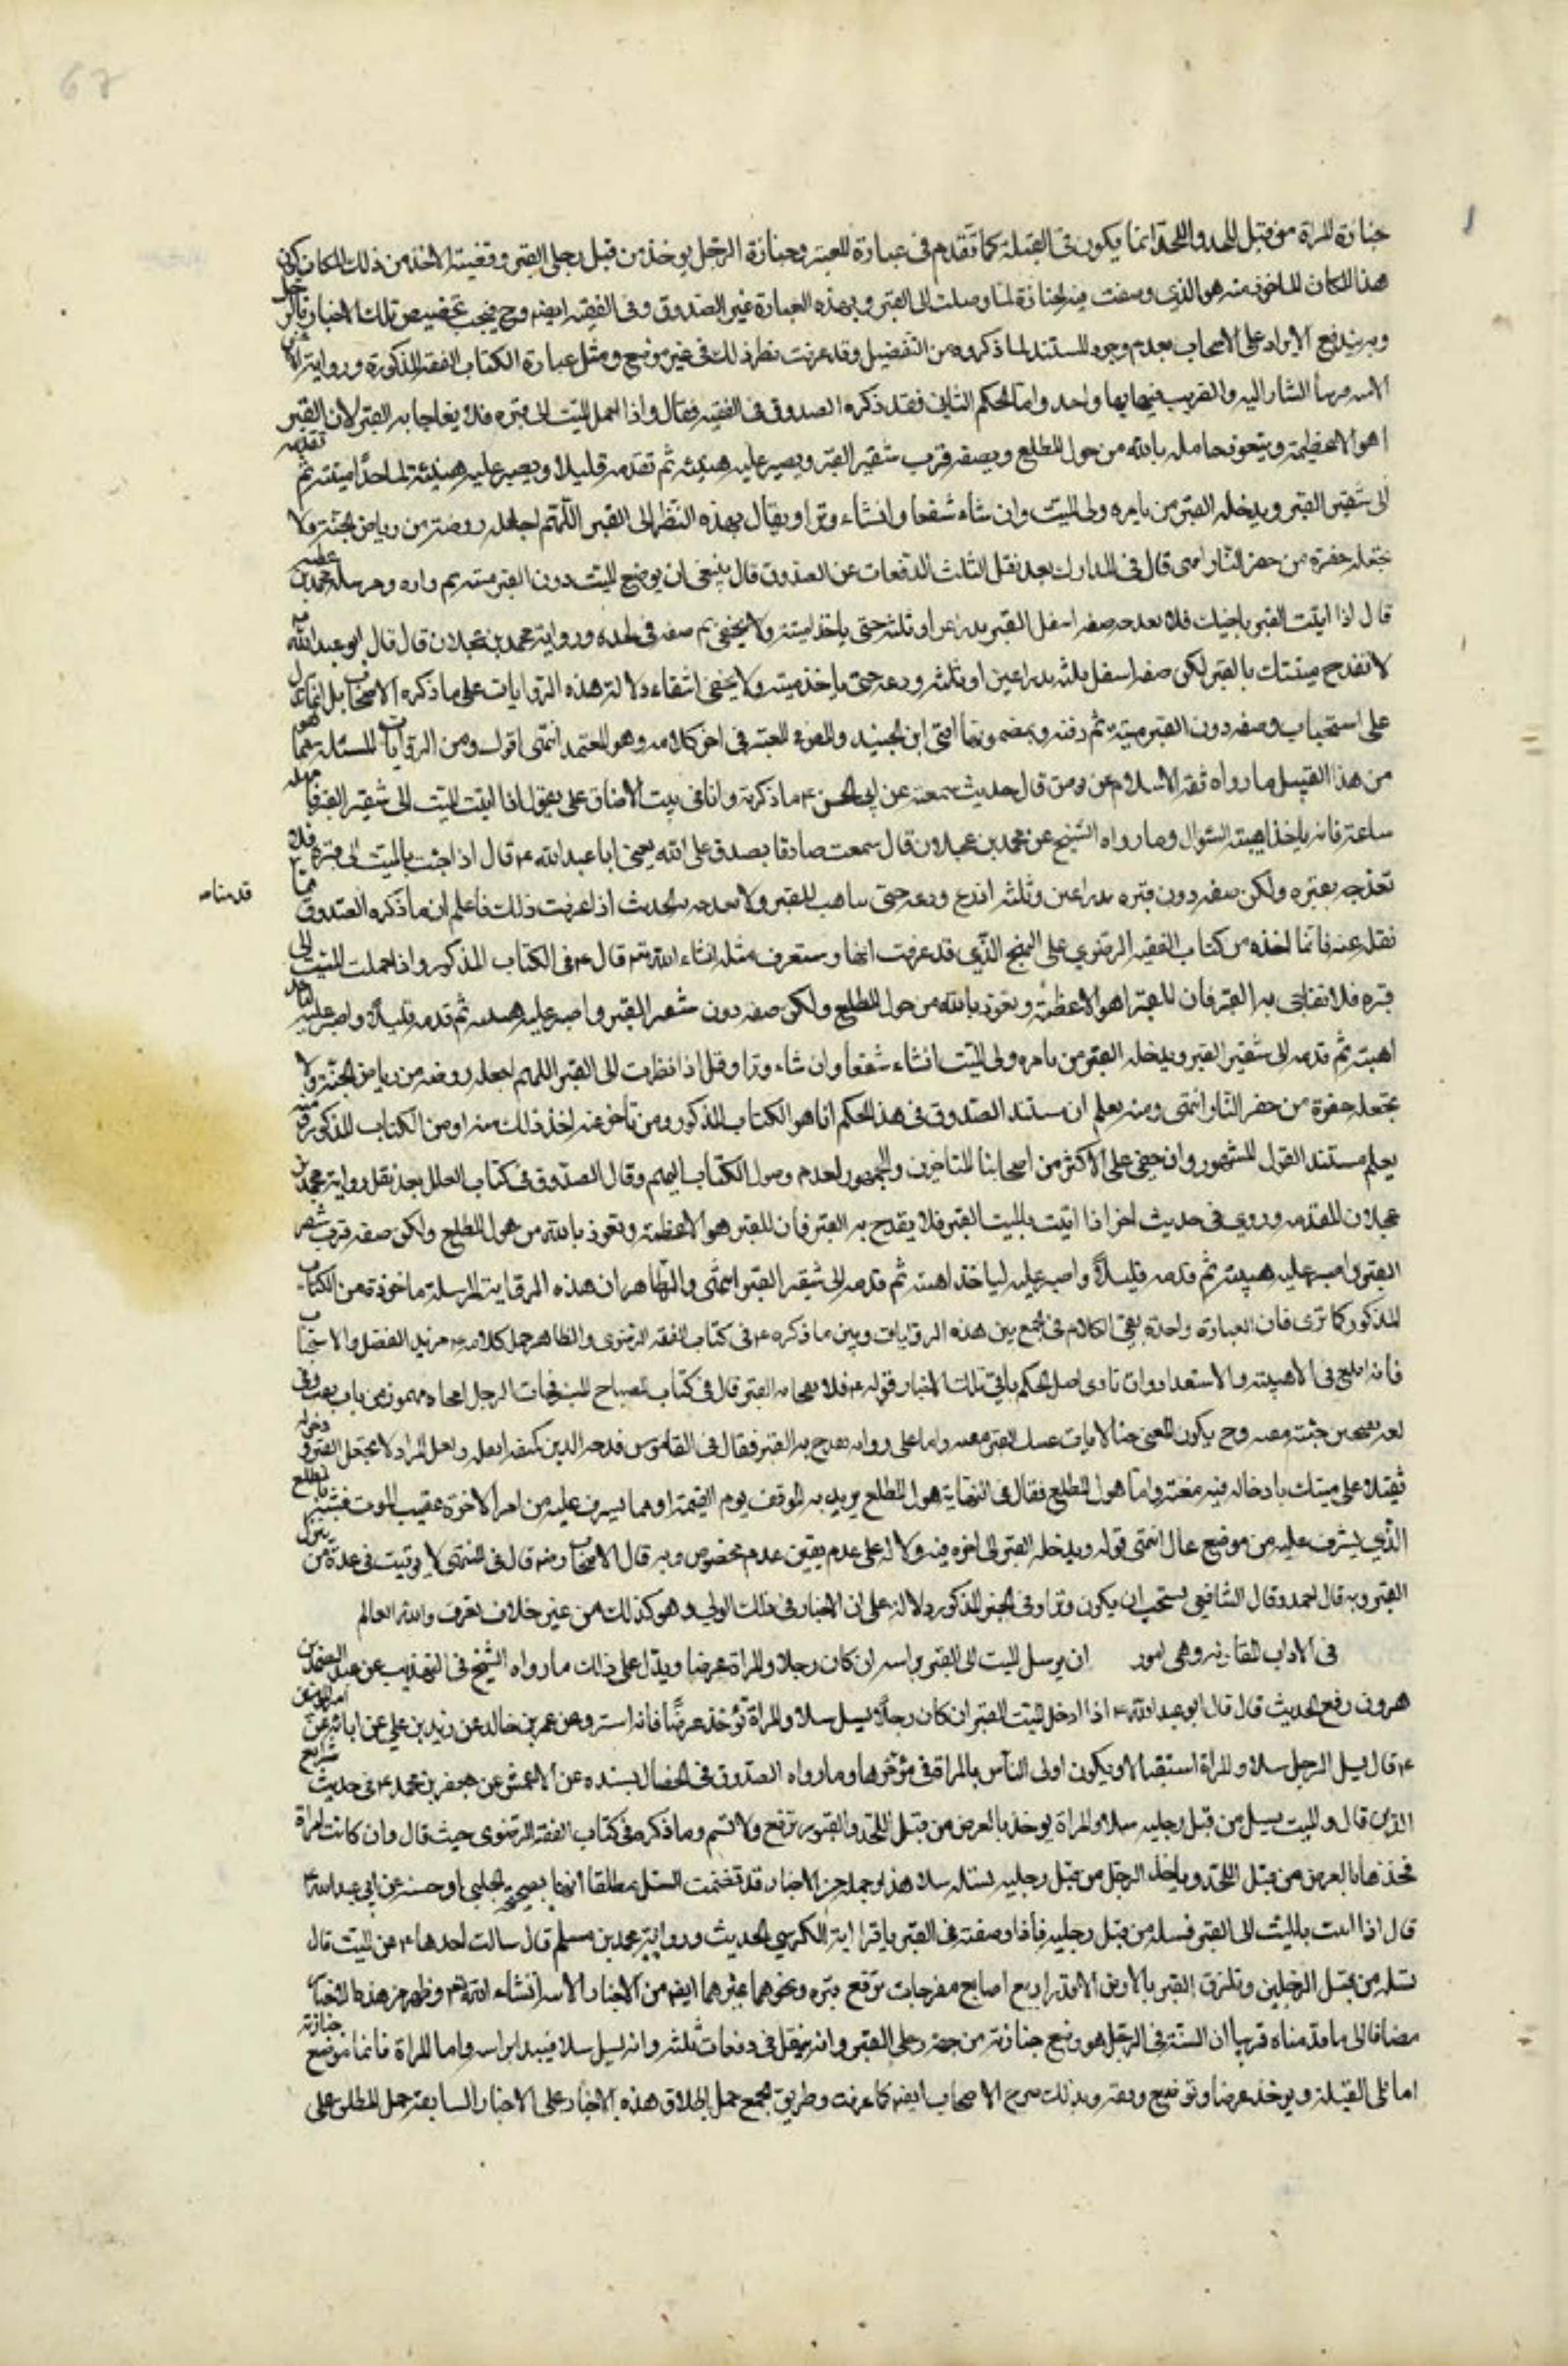 67
جنازة المراة من قبل اللحد واللحد انما يكون في القبلة كما تقدم في عبارة المعتبر وجنازة الرجل يوخذ من قبل رجلي القبر وقضية الاخذ من ذلك المكان كون
هذا المكان الماخوذ منه هو الذي وضعت فيه الجنازة لما وصلت الى القبر وبهذه العبارة عبر الصدوق في الفقيه ايضا وح فيجب تخصيص تلك الاخبار بالرجل
وبه يندفع الايراد على الاصحاب بعدم وجود المستند لما ذكروه من التفضيل وقد عرفت نظير ذلك في غير موضع ومثل عبارة كتاب الفقه المذكورة ورواية
المشار اليه والتقريب فيهما واحد واما الحكم الثاني فقد ذكره الصدوق في الفقيه فقال واذا حمل الميت الى قبره فلا يفاجا به القبر لان للقبر
اهوالا عظيمة ويتعوذ حامله بالله من هول المطلع ويضعه قرب شفير القبر ويصبر عليه هنيئة ثم يقدمه قليلا ويصبر عليه هنيئة لياخذ اهبته ثم يقدمه
الى شفير القبر ويدخله القبر من يامره ولي الميت ان شاء شفعا وان شاء وترا ويقال عند النظر الى القبر اللهم اجعله روضة من رياض الجنة ولا
تجعله حفرة من حفر النار انتهى قال في المدارك بعد نقل الثلث الدفعات عن الصدوق قال ينبغي ان يوضع الميت دون القبر هنيئة ثم واره ومرسلة محمد بن عطية
قال اذا اتيت باخيك الى القبر فلا تفدحه ضعه اسفل القبر بذراعين او ثلثة حتى ياخذ اهبته ثم ضعه في لحده ورواية محمد بن عجلان قال قال ابو عبد الله
لا تفدح ميتك بالقبر لكن ضعه اسفل منه بذراعين او ثلثة ودعه حتى ياخذ اهبته ولا يخفى انتفاء دلالة هذه الروايات على ما ذكره الاصحاب بل انما تدل
على استحباب وضعه دون القبر هنيئة ثم دفنه وبمضمونها افتى ابن الجنيد والمصنف في المعتبر في اخر كلامه وهو المعتمد انتهى اقول ومن الروايات للمسئلة مما هو
من هذا القبيل ما رواه ثقة الاسلام عن يونس قال حديث سمعته عن ابي الحسن ع ما ذكرته وانا في بيت الا ضاق علي يقول اذا اتيت بالميت الى شفير القبر فامهله
ساعة فانه ياخذ اهبته للسؤال وما رواه الشيخ عن محمد بن عجلان قال سمعت صادقا يصدق على الله يعني ابا عبد الله ع قال اذا جئت بالميت الى قبره فلا
تفدحه بقبره ولكن ضعه دون قبره بذراعين وثلثة اذرع ودعه حتى يتاهب للقبر ولا تفدحه به الحديث اذا عرفت ذلك فاعلم ان ما ذكره الصدوق مما
قدمناه
نقله عنه فانما اخذه من كتاب الفقه الرضوي على النهج الذي قد عرفت انفا وستعرف مثله انشاء الله تعالى قال ع في الكتاب المذكور واذا حملت الميت الى
قبره فلا تفاجي به القبر فان للقبر اهوالا عظيمة وتعوذ بالله من هول المطلع ولكن ضعه دون شفير القبر واصبر عليه هنيئة ثم قدمه قليلا واصبر عليه لياخذ
اهبته ثم قدمه الى شفير القبر ويدخله القبر من يامره ولي الميت انشاء شفعا وان شاء وترا وقل اذا نظرت الى القبر اللهم اجعله روضة من رياض الجنة ولا
تجعله حفرة من حفر النار انتهى ومنه يعلم ان مستند الصدوق في هذا الحكم انما هو الكتاب المذكور ومن تاخر عنه اخذ ذلك منه او من الكتاب المذكور ومنه
يعلم مستند القول المشهور وان خفي على الاكثر من اصحابنا المتاخرين والجمهور لعدم وصول الكتاب اليهم وقال الصدوق في كتاب العلل بعد نقل رواية محمد بن
عجلان المتقدمة وروي في حديث اخر اذا اتيت بالميت القبر فلا تفدح به القبر فان للقبر اهوالا عظيمة وتعوذ بالله من هول المطلع ولكن ضعه قرب شفير
القبر واصبر عليه هنيئة ثم قدمه قليلا واصبر عليه لياخذ اهبته ثم قدمه الى شفير القبر انتهى والظاهر ان هذه الرواية المرسلة ماخوذة من الكتاب
المذكور كما ترى فان العبارة واحدة بقي الكلام في الجمع بين هذه الروايات وبين ما ذكره ع في كتاب الفقه الرضوي والظاهر حمل كلامه ع مزيد الفضل والاستحباب
فانه ابلغ في الاهبة والاستعداد وان تادى اصل الحكم بباقي تلك الاخبار قوله ع فلا تفاجا به القبر قال في كتاب المصباح المنير فجات الرجل افجاه مهموز من باب تعب وفي
لغة بفتحتين جئته بغتة وح يكون المعنى هنا لا يات بميتك القبر بغتة واما على رواية تفدح به القبر فقال في القاموس فدحه الدين كمنعه اثقله ولعل المراد لا تجعل القبر ودخوله
ثقيلا على ميتك بادخاله فيه بغتة واما هول المطلع فقال في النهاية هول المطلع يريد به الموقف يوم القيمة او ما يشرف عليه من امر الاخرة عقيب الموت فشبه بالمطلع
الذي يشرف عليه من موضع عال انتهى قوله ويدخله القبر الى اخره فيه دلالة على عدم تعيين عدد مخصوص وبه قال الاصحاب رضه قال في المنتهى لا توقيت في عدة من ينزل
القبر وبه قال احمد وقال الشافعي يستحب ان يكون وترا وفي الخبر المذكور دلالة على ان الاختيار في ذلك الولي وهو كذلك من غير خلاف يعرف والله العالم
في الاداب المقارنة وهي امور ان يرسل الميت الى القبر براسه ان كان رجلا والمراة عرضا ويدل على ذلك ما رواه الشيخ في التهذيب عن عبد الصمد بن
هرون رفع الحديث قال قال ابو عبد الله ع اذا ادخل الميت القبر ان كان رجلا يسل سلا والمراة تؤخذ عرضا فانه استر وعن عمر بن خالد عن زيد بن علي عن ابائه عن امير المؤمنين
ع قال يسل الرجل سلا والمراة استقبالا ويكون اولى الناس بالمراة في مؤخرها وما رواه الصدوق في الخصال بسنده عن الاعمش عن جعفر بن محمد ع في حديث شرايع
الدين قال والميت يسل من قبل رجليه سلا والمراة يوخذ بالعرض من قبل اللحد والقبور تربع ولا تسنم وما ذكره في كتاب الفقه الرضوي حيث قال وان كانت امراة
فخذها بالعرض من قبل اللحد وياخذ الرجل من قبل رجليه تسله سلا هذا وجملة من الاخبار قد تضمنت السل مطلقا انها صحيحة الحلبي او حسنة عن ابي عبد الله ع
قال اذا اتيت بالميت الى القبر فسله من قبل رجليه فاذا وضعته في القبر فاقرا اية الكرسي الحديث ورواية محمد بن مسلم قال سالت احدهما ع عن الميت قال
تسله من قبل الرجلين وتلزق القبر بالارض الا قدر اربع اصابع مفرجات تربع قبره ونحوهما غيرهما ايضا من الاخبار الاتية انشاء الله تعالى وظهر من هذه الاخبار
مضافا الى ما قدمناه قريبا ان السنة في الرجل هو وضع جنازته من جهة رجلي القبر وانه ينقل في دفعات ثلثة وانه يسل سلا فيبدا براسه واما المراة فانما توضع جنازتها
اما يلي القبلة ويوخذ عرضا وتوضع دفعة وبذلك صرح الاصحاب ايضا كما عرفت وطريق الجمع حمل اطلاق هذه الاخبار على الاخبار السابقة حمل المطلق على